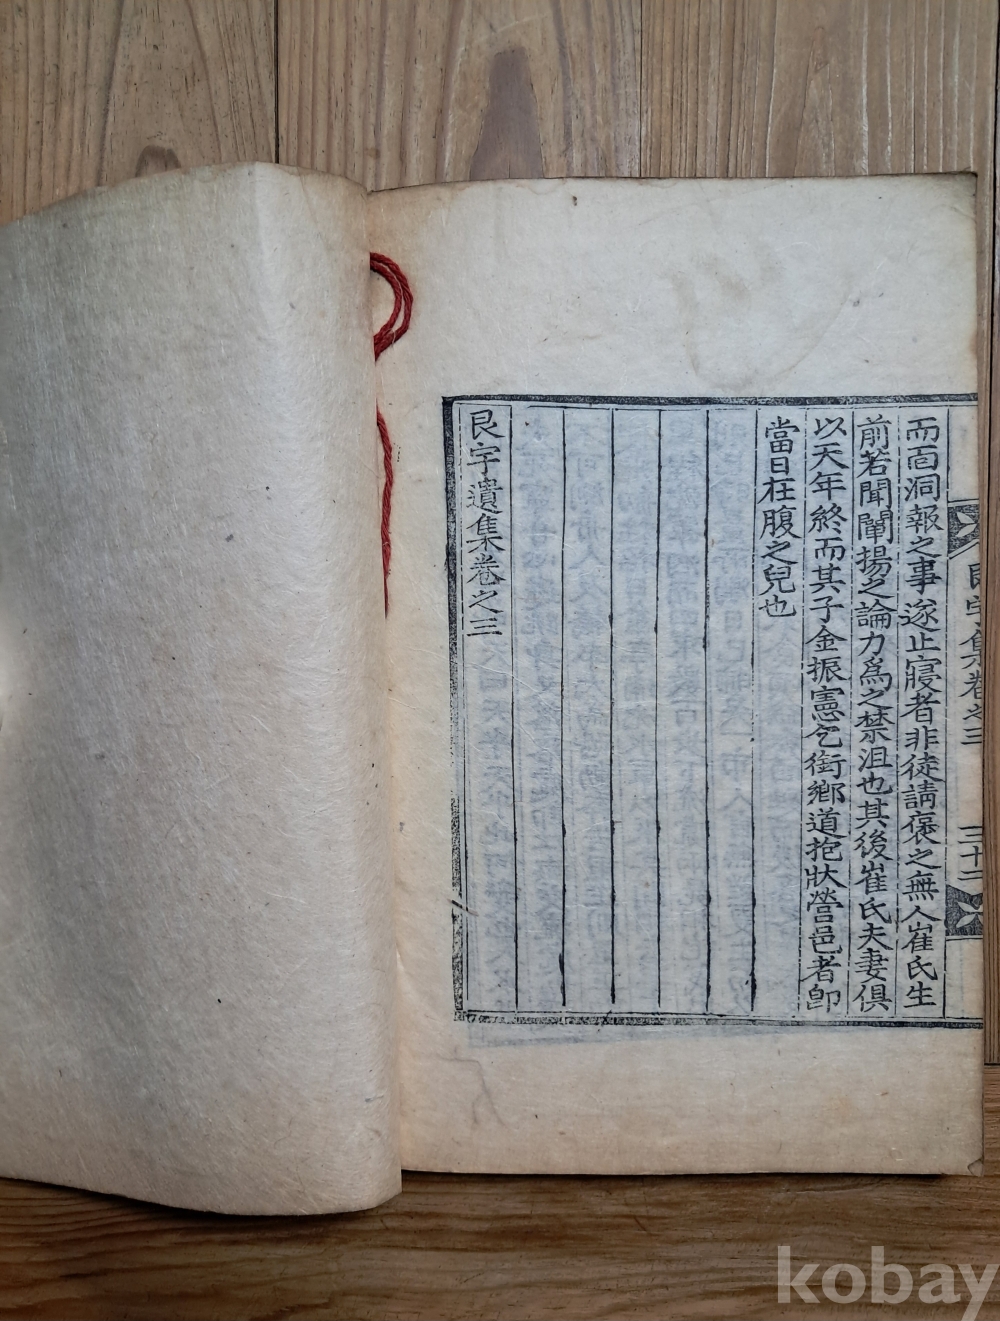 艮宇集卷之三 三十二
而面洞報之事遂止寢者非徒請褒之無人崔氏生
前若聞闡揚之論力爲之禁沮也其後崔氏夫妻俱
以天年終而其子金振憲乞銜鄕道抱狀營邑者卽
當日在腹之兒也
艮宇遺集卷之三
kobay